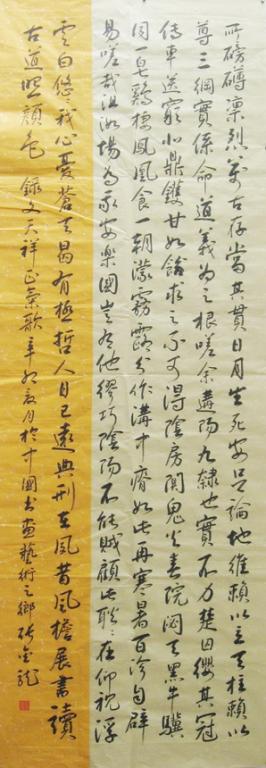 所磅礴凛烈萬古存當其貫日月生死安足論地維賴以立天柱賴以
尊三綱實係命道義為之根嗟余遘陽九隸也實不力楚囚纓其冠
傳車送窮北鼎鑊甘如飴求之不可得陰房闃鬼火春院閟天黑牛驥
同一皂鷄棲鳳凰食一朝濛霧露分作溝中瘠如此再寒暑百沴自辟
易嗟哉沮洳場為我安樂國豈有他繆巧陰陽不能賊顧此耿〻在仰視浮
雲白悠我心憂蒼天曷有極哲人日已遠典刑在夙昔風檐展書讀
古道照顏色 錄文天祥正氣歌 辛卯夏月於中國書畫藝術之鄉張金龍